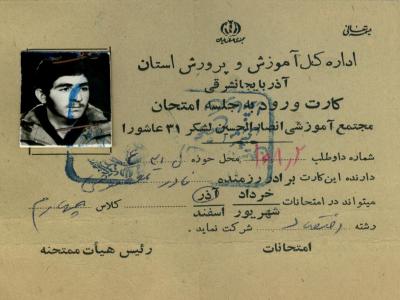 بسمه تعالی
جمهوری اسلامی ایران
اداره کل آموزش و پرورش استان
آذربایجانشرقی
کارت ورود به جلسه امتحان
مجتمع آموزشی انصارالحسین لشکر ۳۱ عاشورا
شماره داوطلب محل حوزه
دارنده این کارت برادر رزمنده نادر
میتواند در امتحانات خرداد آذر کلاس چهارم
شهریور اسفند
رشته اقتصاد شرکت نماید.
امتحانات رئیس هیأت ممتحنه